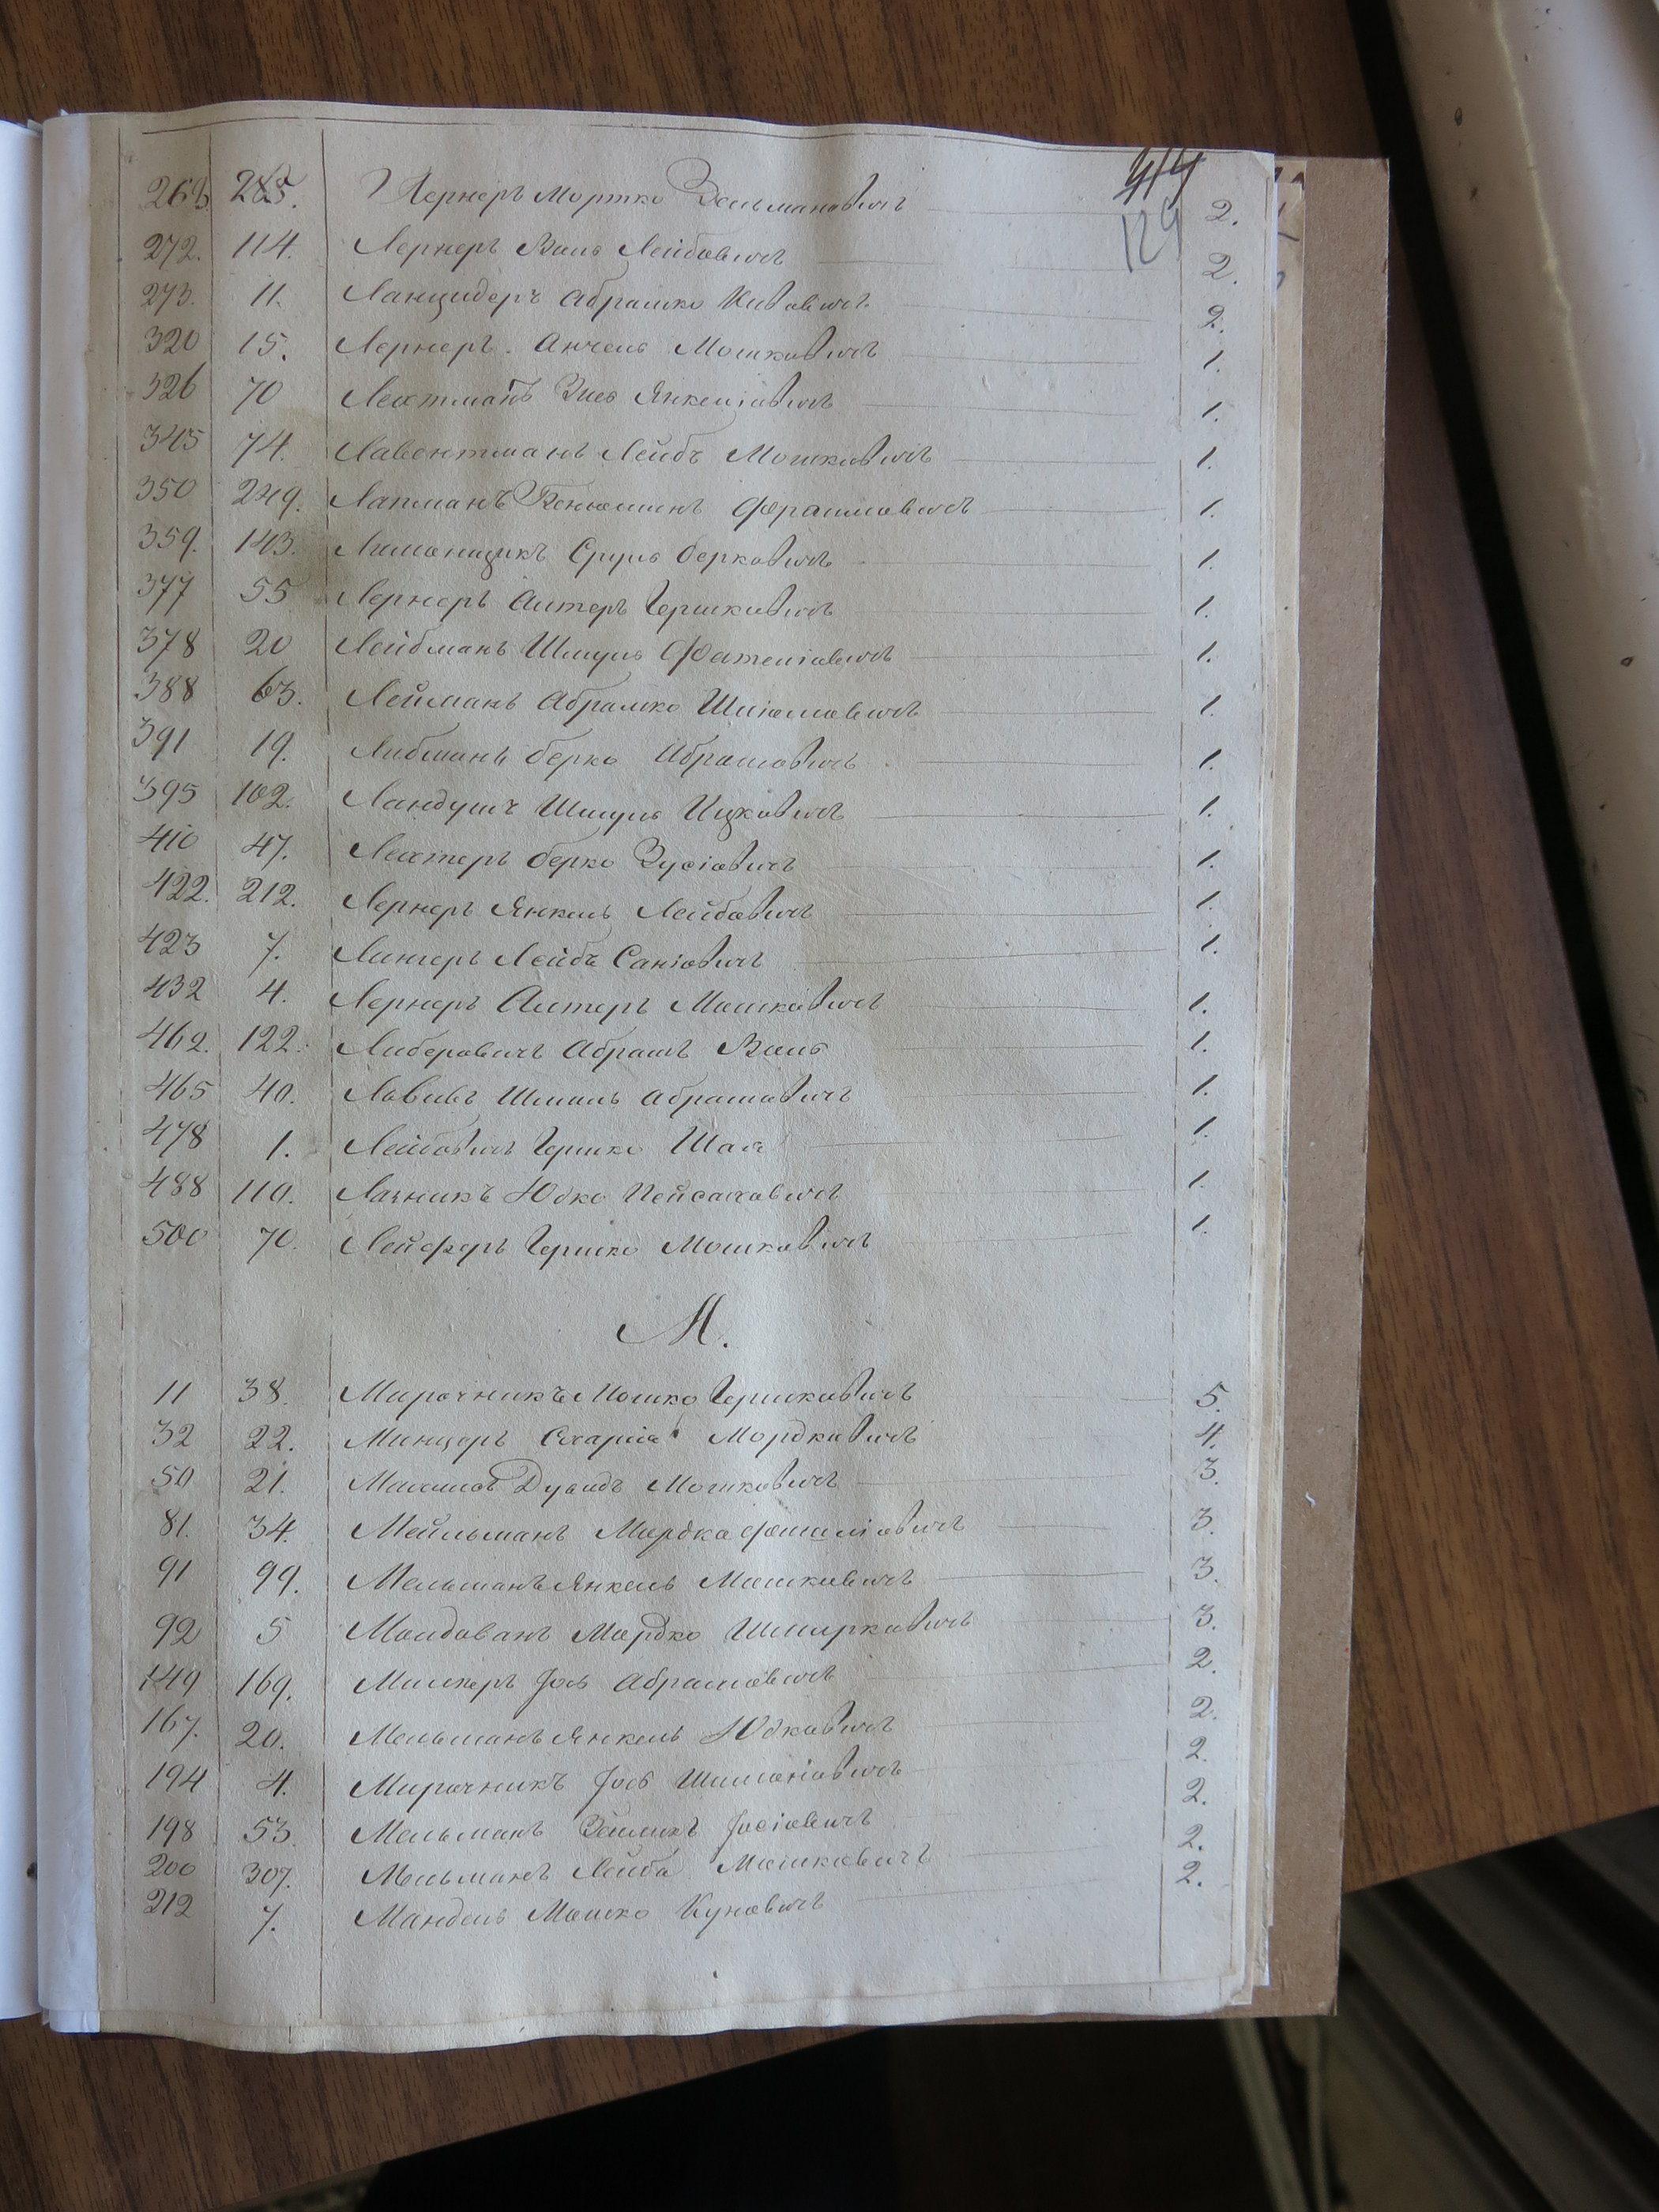 414
129
269. 285. Лернеръ Мортко Зельмановичъ 2.
272. 114. Лернеръ Воль Лейбовичъ 2.
273. 11. Ланцидеръ Абрашко Кивовичъ 2.
320 15. Лернеръ Анчель Мошковичъ 1.
326 70 Лехтманъ Янкеліовичъ 1.
345 74. Лавентманъ Лейбъ Мошковичъ 1.
350 249. Лапманъ Беньюминъ Фраимовичъ 1.
359. 143. Лимонщикъ Сруль Берковичъ 1.
377 55 Лернеръ Алтеръ Гершковичъ 1.
378 20 Лейбманъ Шмуль 1.
388 63. Лейманъ Абрамко Шліомовичъ 1.
391 19. Либманъ Берко Абрамовичъ 1.
395 102. Ландушъ Шмуль Ицковичъ 1.
410 47. Лехтеръ Берко Зусіовичъ 1.
422. 212. Лернеръ Янкель Лейбовичъ 1.
423 7. Лингеръ Лейбъ Саніовичъ 1.
432 4. Лернеръ Алтеръ Мошковичъ 1.
462. 122. Либеровичъ Абрамъ Воль 1.
465 40. Львивъ Шмиль Абрамовичъ 1.
478 1. Лейбовичъ Гершко Шая 1.
488 110. Лачникъ Юдко Пейсаховичъ 1.
500 70. Лейферъ Гершко Мошковичъ 1.
М.
11 38. Мирочникъ Мошко Гершковичъ 5.
32 22. Минцеръ Схарія Мордковичъ 4.
50 21. Дувидъ Мошковичъ 3.
81. 34. Мейльманъ Мордко 3.
91 99. Мельманъ Янкель Мошковичъ 3.
92 5 Молдованъ Мордко Шмирковичъ 3.
149 169. Милнеръ Іось Абрамовичъ 2.
167. 20. Мельманъ Янкель Юдковичъ 2.
194 4. Мирочникъ Іось Шимоніовичъ 2.
198 53. Мельманъ Зейликъ Іосіовичъ 2.
200 307. Мельманъ Лейба Мошковичъ 2.
212 7. Мандель Мошко Куновичъ 2.